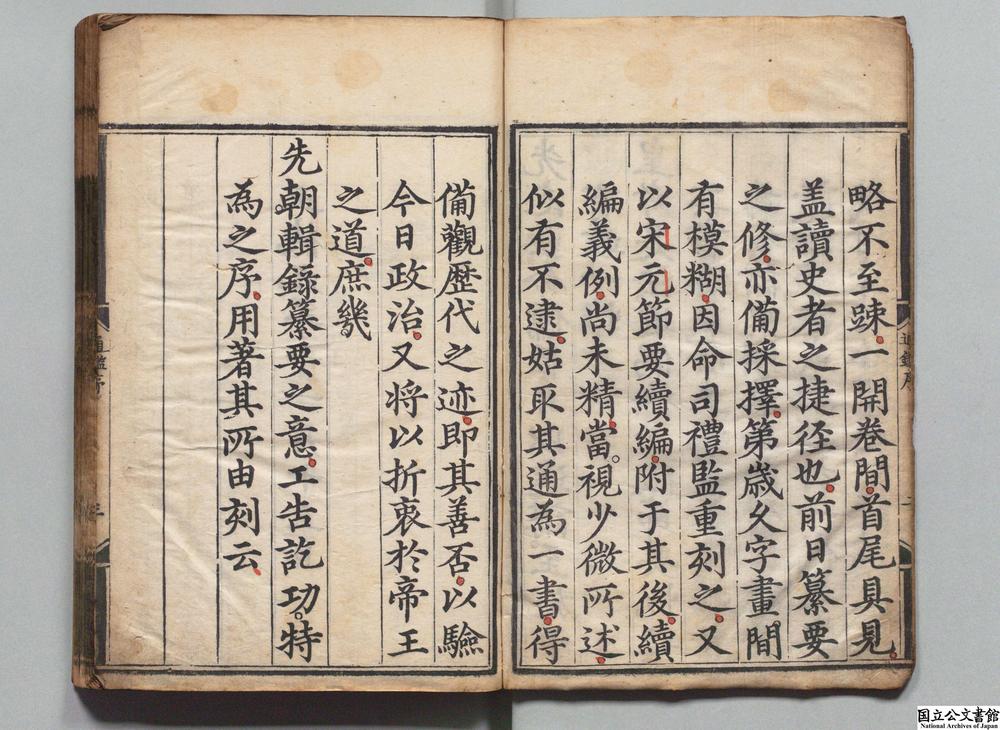 略不至踈一開卷間首尾具見
盖讀史者之捷徑也前日纂要
之修亦備採擇第歲久字畫間
有模糊因命司禮監重刻之又
以宋元節要續編附于其後續
編義例尚未精當視少微所述
似有不逮姑取其通為一書得
備觀歷代之迹即其善否以驗
今日政治又将以折衷於帝王
之道庶幾
先朝輯錄纂要之意工告訖功特
為之序用著其所由刻云
通鑑序
二
通鑑序
三
国立公文書館
National Archives of Japan